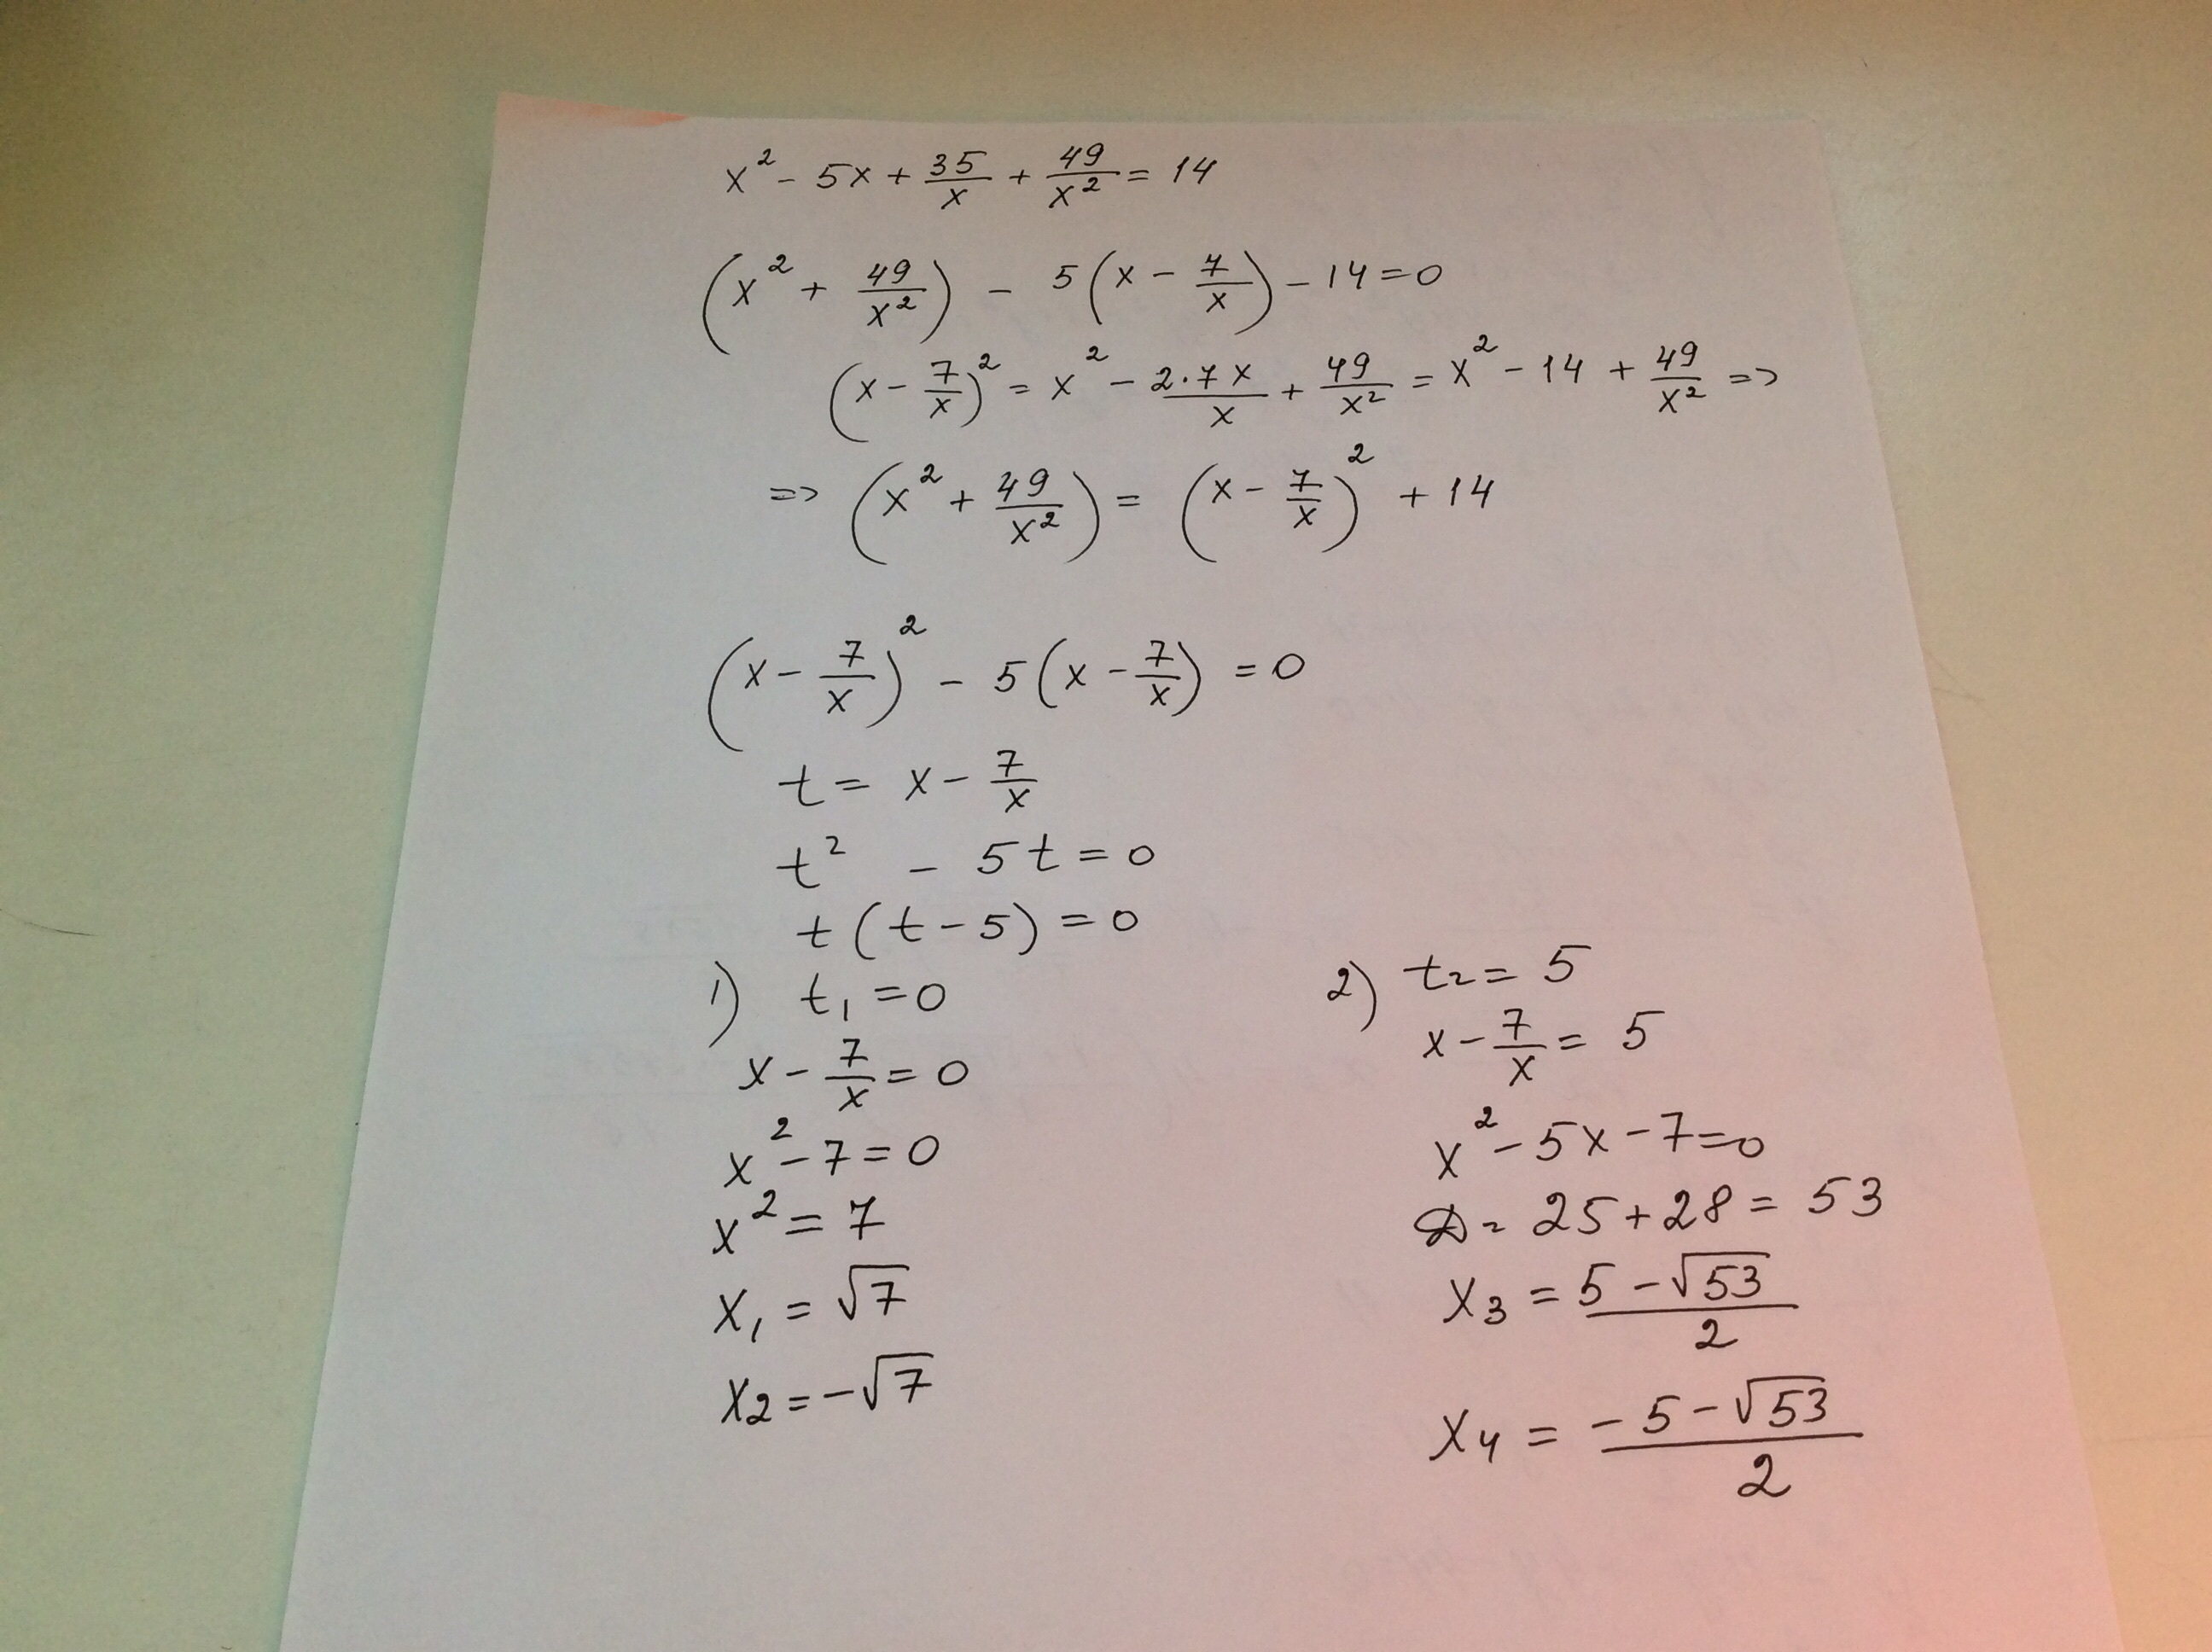 x² - 5x + 35/x + 49/x² = 14
(x² + 49/x²) - 5(x - 7/x) - 14 = 0
(x - 7/x)² = x² - 2·7x/x + 49/x² = x² - 14 + 49/x² =>
=> (x² + 49/x²) = (x - 7/x)² + 14
(x - 7/x)² - 5(x - 7/x) = 0
t = x - 7/x
t² - 5t = 0
t(t - 5) = 0
1) t₁ = 0
x - 7/x = 0
x² - 7 = 0
x² = 7
x₁ = √7
x₂ = -√7
2) t₂ = 5
x - 7/x = 5
x² - 5x - 7 = 0
D = 25 + 28 = 53
x₃ = (5 - √53)/2
x₄ = (-5 - √53)/2